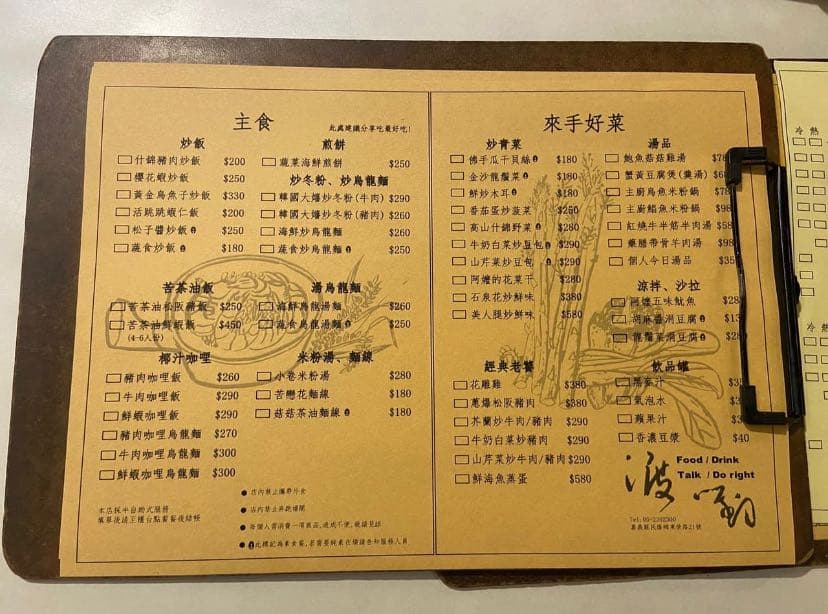 主食
此處建議分享吃最好吃!
炒飯
什錦豬肉炒飯 $200
櫻花蝦炒飯 $250
黃金烏魚子炒飯 $330
活跳跳蝦仁飯 $200
松子醬炒飯 $250
蔬食炒飯 $180
煎餅
蔬菜海鮮煎餅 $250
炒冬粉、炒烏龍麵
韓國大嬸炒冬粉(牛肉) $290
韓國大嬸炒冬粉(豬肉) $260
海鮮炒烏龍麵 $260
蔬食炒烏龍麵 $250
苦茶油飯
苦茶油松阪豬飯 $250
苦茶油鮮蝦飯 $450
(4-6人份)
湯烏龍麵
海鮮烏龍湯麵 $260
蔬食烏龍湯麵 $250
椰汁咖哩
豬肉咖哩飯 $260
牛肉咖哩飯 $290
鮮蝦咖哩飯 $290
豬肉咖哩烏龍麵 $270
牛肉咖哩烏龍麵 $300
鮮蝦咖哩烏龍麵 $300
米粉湯、麵線
小卷米粉湯 $280
苦戀花麵線 $180
菇菇茶油麵線 $180
本店採半自助式服務
填單後請至櫃台點餐後結帳
店內禁止攜帶外食
店內禁止奔跑嬉鬧
每個人需消費一項商品,造成不便,敬請見諒
此標記為素食餐,若需要純素在煩請告知服務人員
來手好菜
炒青菜
佛手瓜干貝絲 $180
金沙龍鬚菜 $180
鮮炒木耳 $180
番茄蛋炒菠菜 $250
高山什錦野菜 $280
牛奶白菜炒豆包 $290
山芹菜炒豆包 $290
阿嬤的花菜干 $280
石泉花炒鮮味 $380
美人腿炒鮮味 $580
湯品
鮑魚菇菇雞湯
蟹黃豆腐煲(羹湯)
主廚烏魚米粉鍋
主廚鯧魚米粉鍋
紅燒牛半筋半肉湯
藥膳帶骨羊肉湯
個人今日湯品
涼拌、沙拉
阿嬤五味魷魚
胡麻醬涓豆腐
龍鬚菜涓豆腐
經典老饕
花雕雞 $380
蔥爆松阪豬肉 $380
芥蘭炒牛肉/豬肉 $290
牛奶白菜炒豬肉 $290
山芹菜炒牛肉/豬肉 $290
鮮海魚蒸蛋 $580
飲品罐
黑麥汁
氣泡水
蘋果汁
香濃豆漿 $40
Food / Drink
Talk / Do right